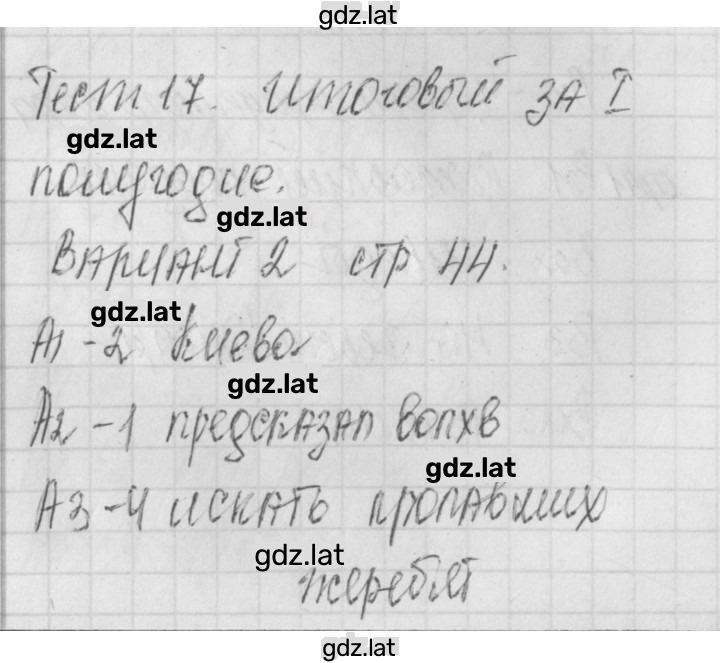 gdz.lat
Тест 17. Итоговый за I
gdz.lat
полугодие.
gdz.lat
Вариант 2 стр 44.
gdz.lat
А1 - 2 Киева
gdz.lat
А2 - 1 предсказал волхв
gdz.lat
А3 - 4 искать пропавших
gdz.lat
жеребят
gdz.lat